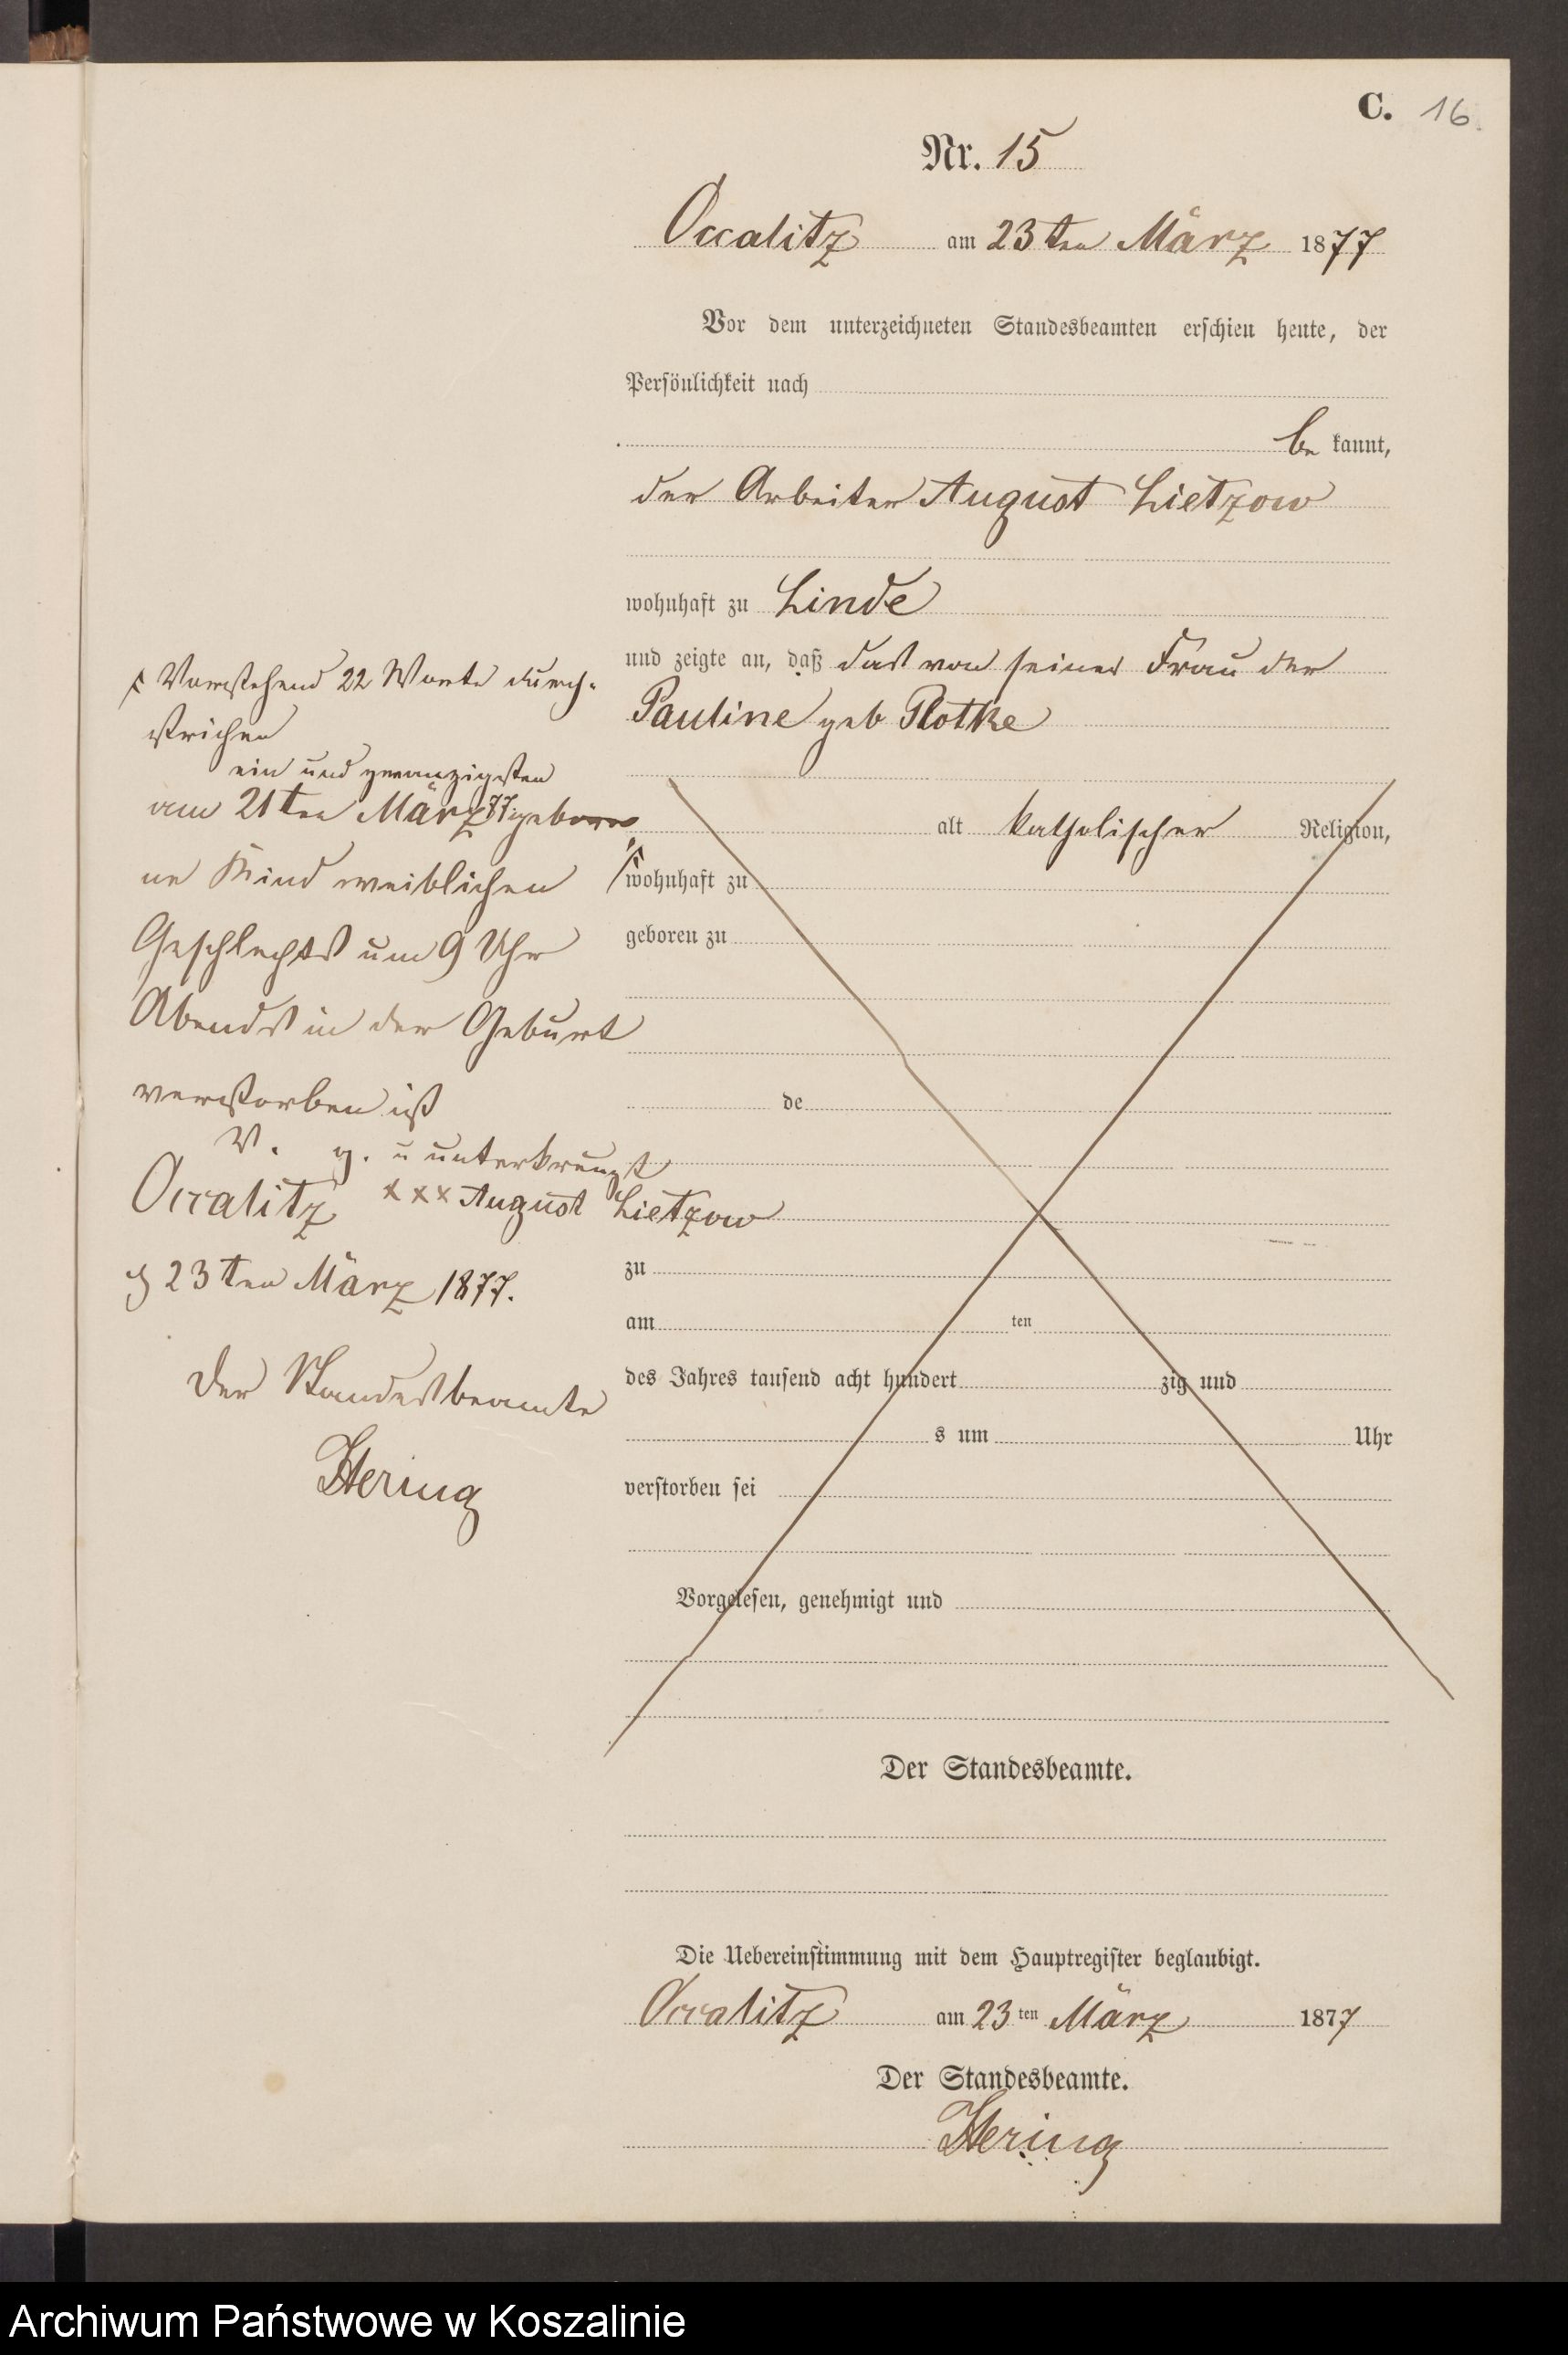 C. 16.
Nr. 15
Occalitz am 23ten März 1877
Vor dem unterzeichneten Standesbeamten erschien heute, der
Persönlichkeit nach
be kannt,
der Arbeiter August Lietzow
wohnhaft zu Linde
und zeigte an, daß das von seiner Frau der
Pauline geb Plotke
alt katholischer Religion,
wohnhaft zu
geboren zu
de
zu
am ten
des Jahres tausend acht hundert zig und
s um Uhr
verstorben sei
Vorgelesen, genehmigt und
Vorstehend 22 Worte durch-
strichen
ein und zwanzigsten
am 21ten März 77 gebor
ne Kind weiblichen
Geschlechts um 9 Uhr
Abends in der Geburt
verstorben ist
V. g. u unterkreuzt
Occalitz xxx August Lietzow
d 23ten März 1877.
Der Standesbeamte
Hering
Der Standesbeamte.
Die Uebereinstimmung mit dem Hauptregister beglaubigt.
Occalitz am 23ten März 1877
Der Standesbeamte.
Hering
Archiwum Państwowe w Koszalinie